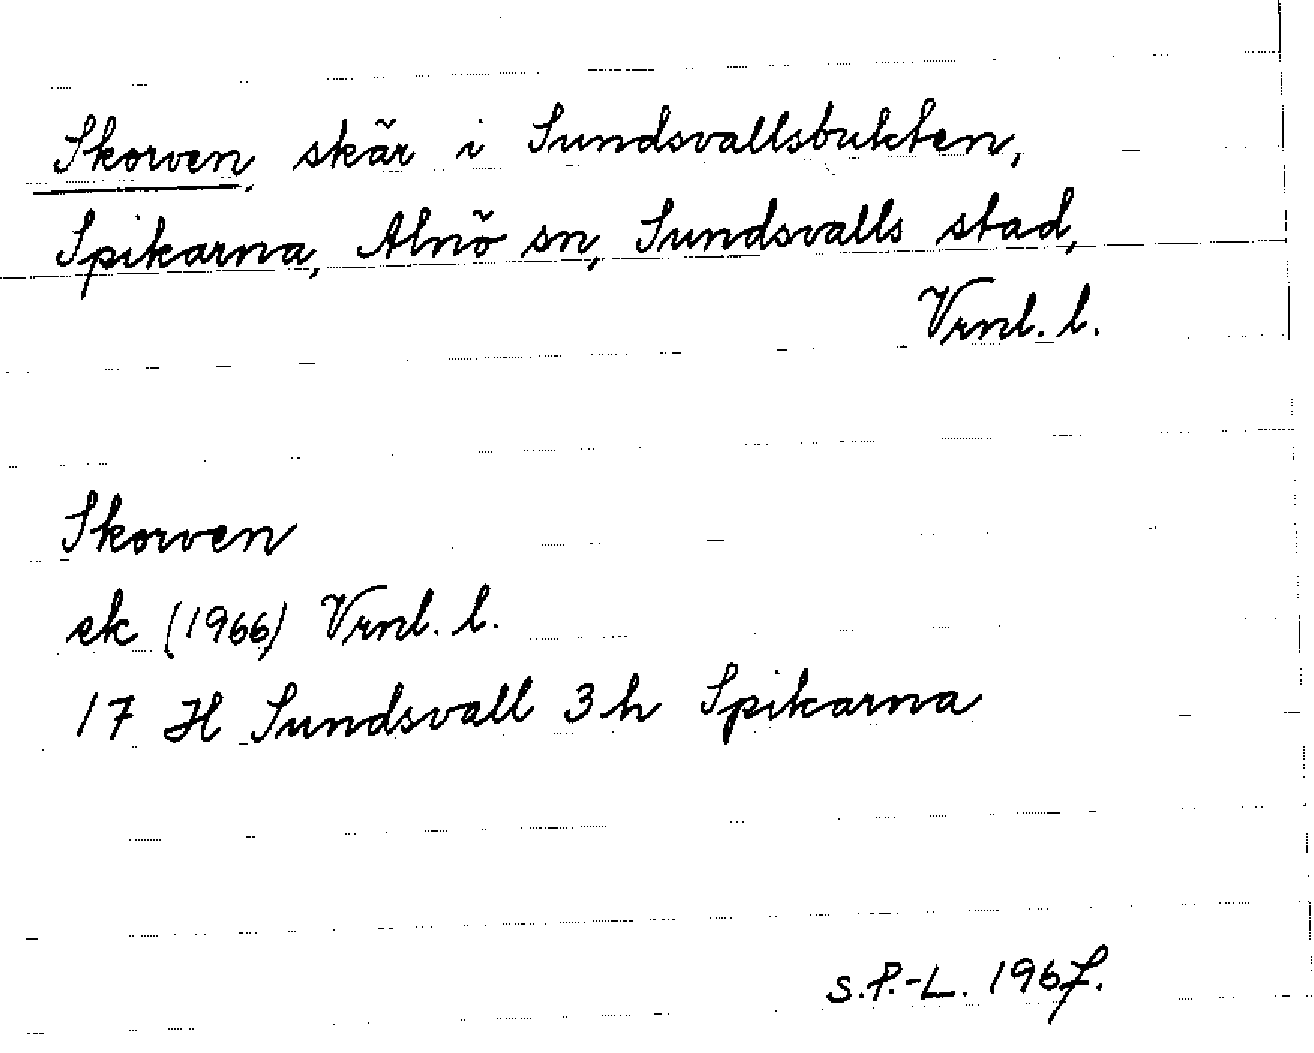 Skorven, skär i Sundsvallsbukten,
Spikarna, Alnö sn, Sundsvalls stad,
Vrnl. l.
Skorven
ek (1966) Vrnl. l.
17 H Sundsvall 3 h Spikarna
S.P.-L. 1967.